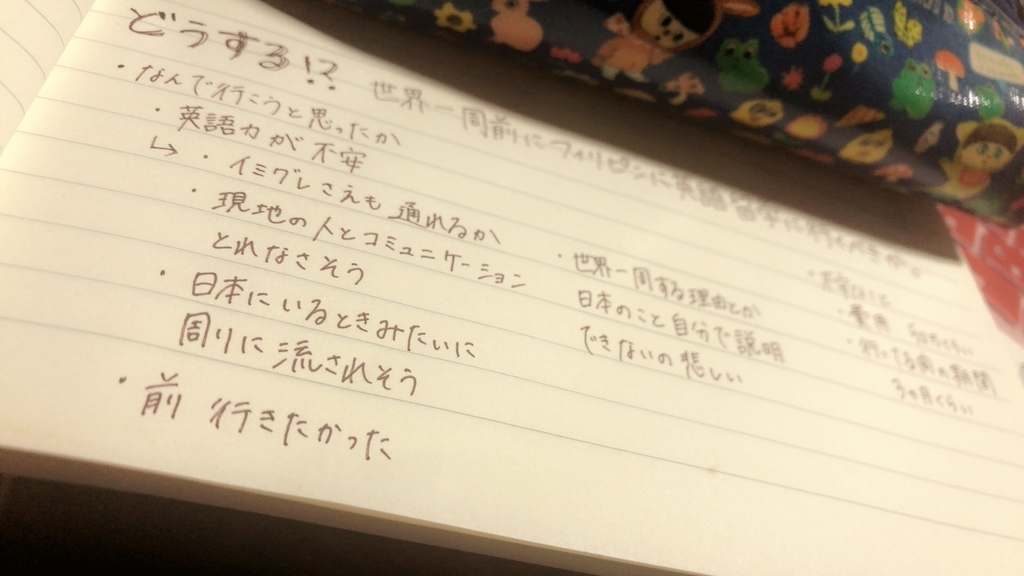 どうする!?
世界一周前にフィリピンに英語留学に行くべきか。
・なんで行こうと思ったか
・英語力が不安
↳・イミグレさえも通れるか
・現地の人とコミュニケーション
とれなさそう
・日本にいるときみたいに
周りに流されそう
・前 行きたかった
・世界一周する理由とか
日本のこと自分で説明
できないの悲しい
・不安なこと
・費用 くらい
・行ってる間の期間
3ヶ月くらい